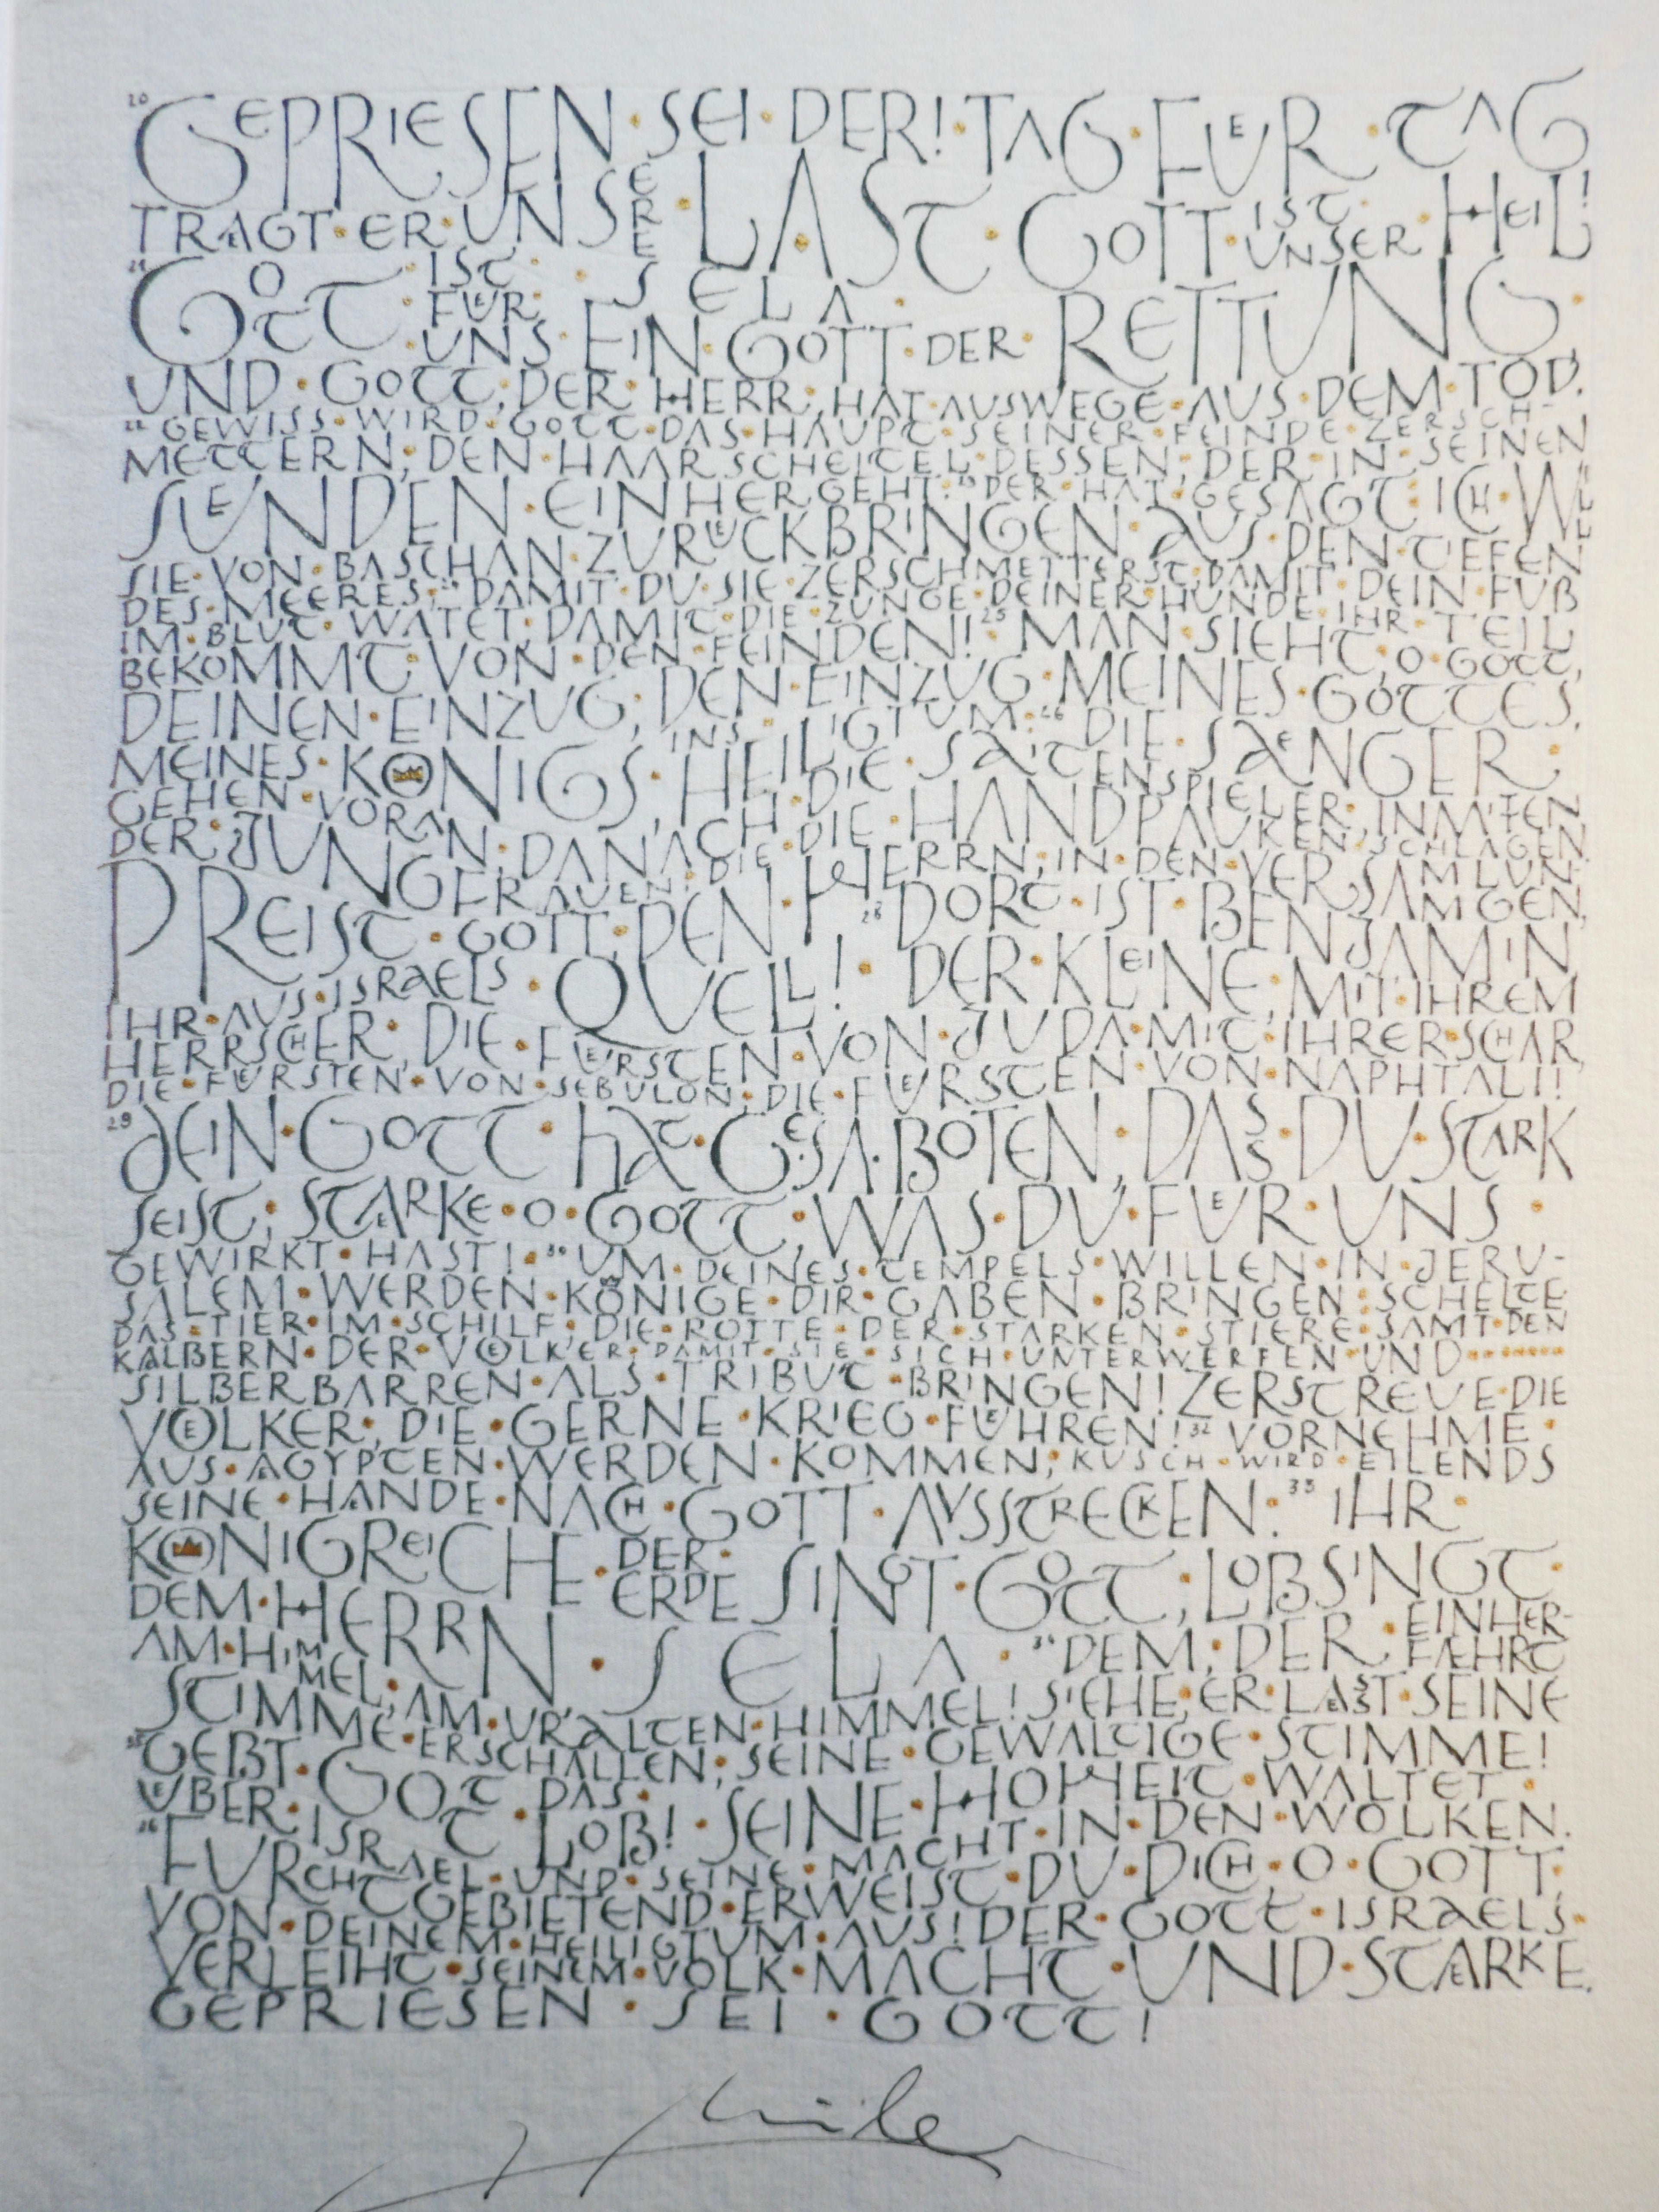 20 GEPRIESEN · SEI · DER! · TAG · FUER · TAG
TRAEGT · ER · UNSERE · LAST · GOTT · IST · UNSER · HEIL!
21 GOTT · IST · FUER · UNS · EIN · GOTT · DER · RETTUNG · SELA ·
UND · GOTT, DER · HERR, HAT · AUSWEGE · AUS · DEM · TOD.
22 GEWISS · WIRD · GOTT · DAS · HAUPT · SEINER · FEINDE · ZERSCH-
METTERN, DEN · HAARSCHEITEL · DESSEN, DER · IN · SEINEN
SUENDEN · EINHERGEHT. 23 DER · HAT · GESAGT · ICH · WILL
SIE · VON · BASCHAN · ZURUECKBRINGEN · AUS · DEN · TIEFEN
DES · MEERES, 24 DAMIT · DU · SIE · ZERSCHMETTERST, DAMIT · DEIN · FUß
IM · BLUT · WATET, DAMIT · DIE · ZUNGE · DEINER · HUNDE · IHR · TEIL
BEKOMMT · VON · DEN · FEINDEN! 25 MAN · SIEHT, O · GOTT,
DEINEN · EINZUG, DEN · EINZUG · MEINES · GOTTES,
MEINES · KÖNIGS, INS · HEILIGTUM. 26 DIE · SAENGER ·
GEHEN · VORAN, DANACH · DIE · SAITENSPIELER, INMITTEN
DER · JUNGFRAUEN, DIE · DIE · HANDPAUKEN · SCHLAGEN.
PREIST · GOTT, DEN · HERRN, IN · DEN · VERSAMLUNGEN,
IHR · AUS · ISRAELS · QUELL! 28 DORT · IST · BENJAMIN,
DER · KLEINE, MIT · IHREM
HERRSCHER, DIE · FUERSTEN · VON · JUDA · MIT · IHRER · SCHAR,
DIE · FUERSTEN · VON · SEBULON, DIE · FUERSTEN · VON · NAPHTALI!
29 DEIN · GOTT · HAT · GESA · BOTEN, DASS · DU · STARK
SEIST; STAERKE · O · GOTT, WAS · DU · FUER · UNS ·
GEWIRKT · HAST! · 30 UM · DEINES · TEMPELS · WILLEN · IN · JERU-
SALEM · WERDEN · KÖNIGE · DIR · GABEN · BRINGEN · SCHELTE
DAS · TIER · IM · SCHILF, DIE · ROTTE · DER · STARKEN · STIERE · SAMT · DEN
KAELBERN · DER · VOELKER · DAMIT · SIE · SICH · UNTERWERFEN · UND
SILBERBARREN · ALS · TRIBUT · BRINGEN! ZERSTREUE · DIE
VOELKER, DIE · GERNE · KRIEG · FUEHREN! 32 VORNEHME ·
AUS · AEGYPTEN · WERDEN · KOMMEN, KUSCH · WIRD · EILENDS
SEINE · HAENDE · NACH · GOTT · AUSSTRECKEN. 33 IHR ·
KÖNIGREICHE · DER · ERDE SINGT · GOTT, LOBSINGT ·
DEM · HERRN · SELA · 34 DEM, DER · EINHER-
FAEHRT
AM · HIMMEL, AM · URALTEN · HIMMEL! SIEHE, ER · LAESST · SEINE
STIMME · ERSCHALLEN, SEINE · GEWALTIGE · STIMME!
35 GEBT · GOTT · DAS · LOB! · SEINE · HOHEIT · WALTET ·
UEBER · ISRAEL · UND · SEINE · MACHT · IN · DEN · WOLKEN.
36 FURCHTGEBIETEND · ERWEIST · DU · DICH, O · GOTT,
VON · DEINEM · HEILIGTUM · AUS! DER · GOTT · ISRAELS ·
VERLEIHT · SEINEM · VOLK · MACHT · UND · STAERKE.
GEPRIESEN · SEI · GOTT!